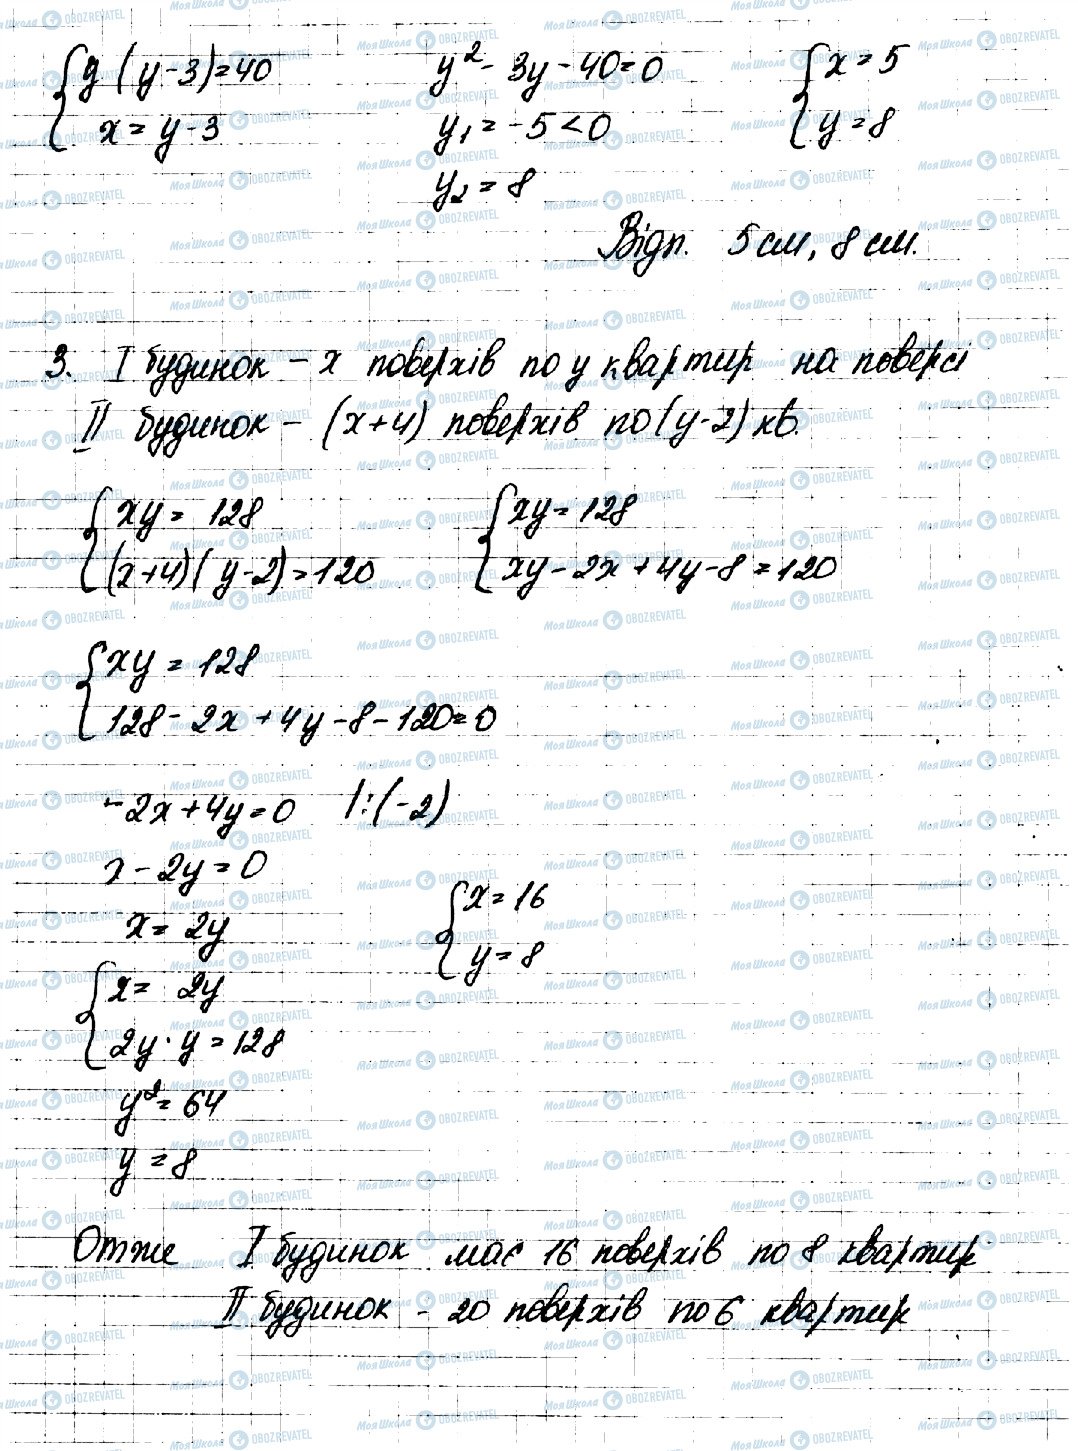 { y(y-3)=40    y² - 3y - 40=0    { x=5
x = y-3    y₁ = -5 < 0    y = 8
y₂ = 8
Відп. 5 см, 8 см.
3. I будинок – x поверхів по y квартир на поверсі
II будинок – (x+4) поверхів по (y-2) кв.
{ xy = 128    { xy = 128
(x+4)(y-2)=120    xy - 2x + 4y - 8 = 120
{ xy = 128
128 - 2x + 4y - 8 - 120 = 0
-2x + 4y = 0    |:(-2)
x - 2y = 0
x = 2y    { x = 16
y = 8
{ x = 2y
2y · y = 128
y² = 64
y = 8
Отже I будинок має 16 поверхів по 8 квартир
II будинок - 20 поверхів по 6 квартир
Моя Школа OBOZREVATEL